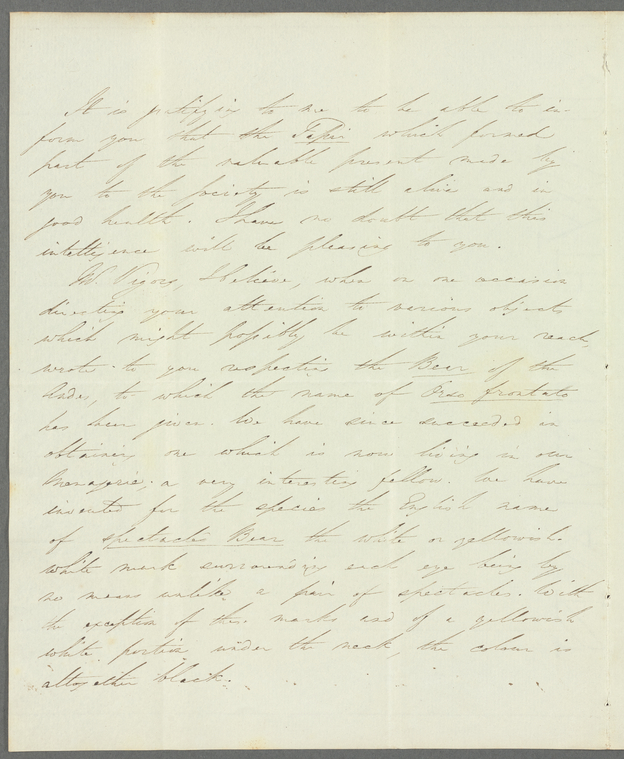 It is gratifying to me to be able to in-
form you that the Tapir which formed
part of the valuable present made by
you to the Society is still alive and in
good health. I have no doubt that this
intelligence will be pleasing to you.
Mr. Vigors, I believe, when on one occasion
directing your attention to various objects
which might possibly be within your reach,
wrote to you respecting the Bear of the
Andes, to which the name of Oso frontato
has been given. We have since succeeded in
obtaining one which is now living in our
Menagerie; a very interesting fellow. We have
invented for the species the English name
of spectacled Bear the white or yellowish-
white mark surrounding each eye being by
no means unlike a pair of spectacles. With
the exception of these marks and of a yellowish
white portion under the neck, the colour is
altogether black.